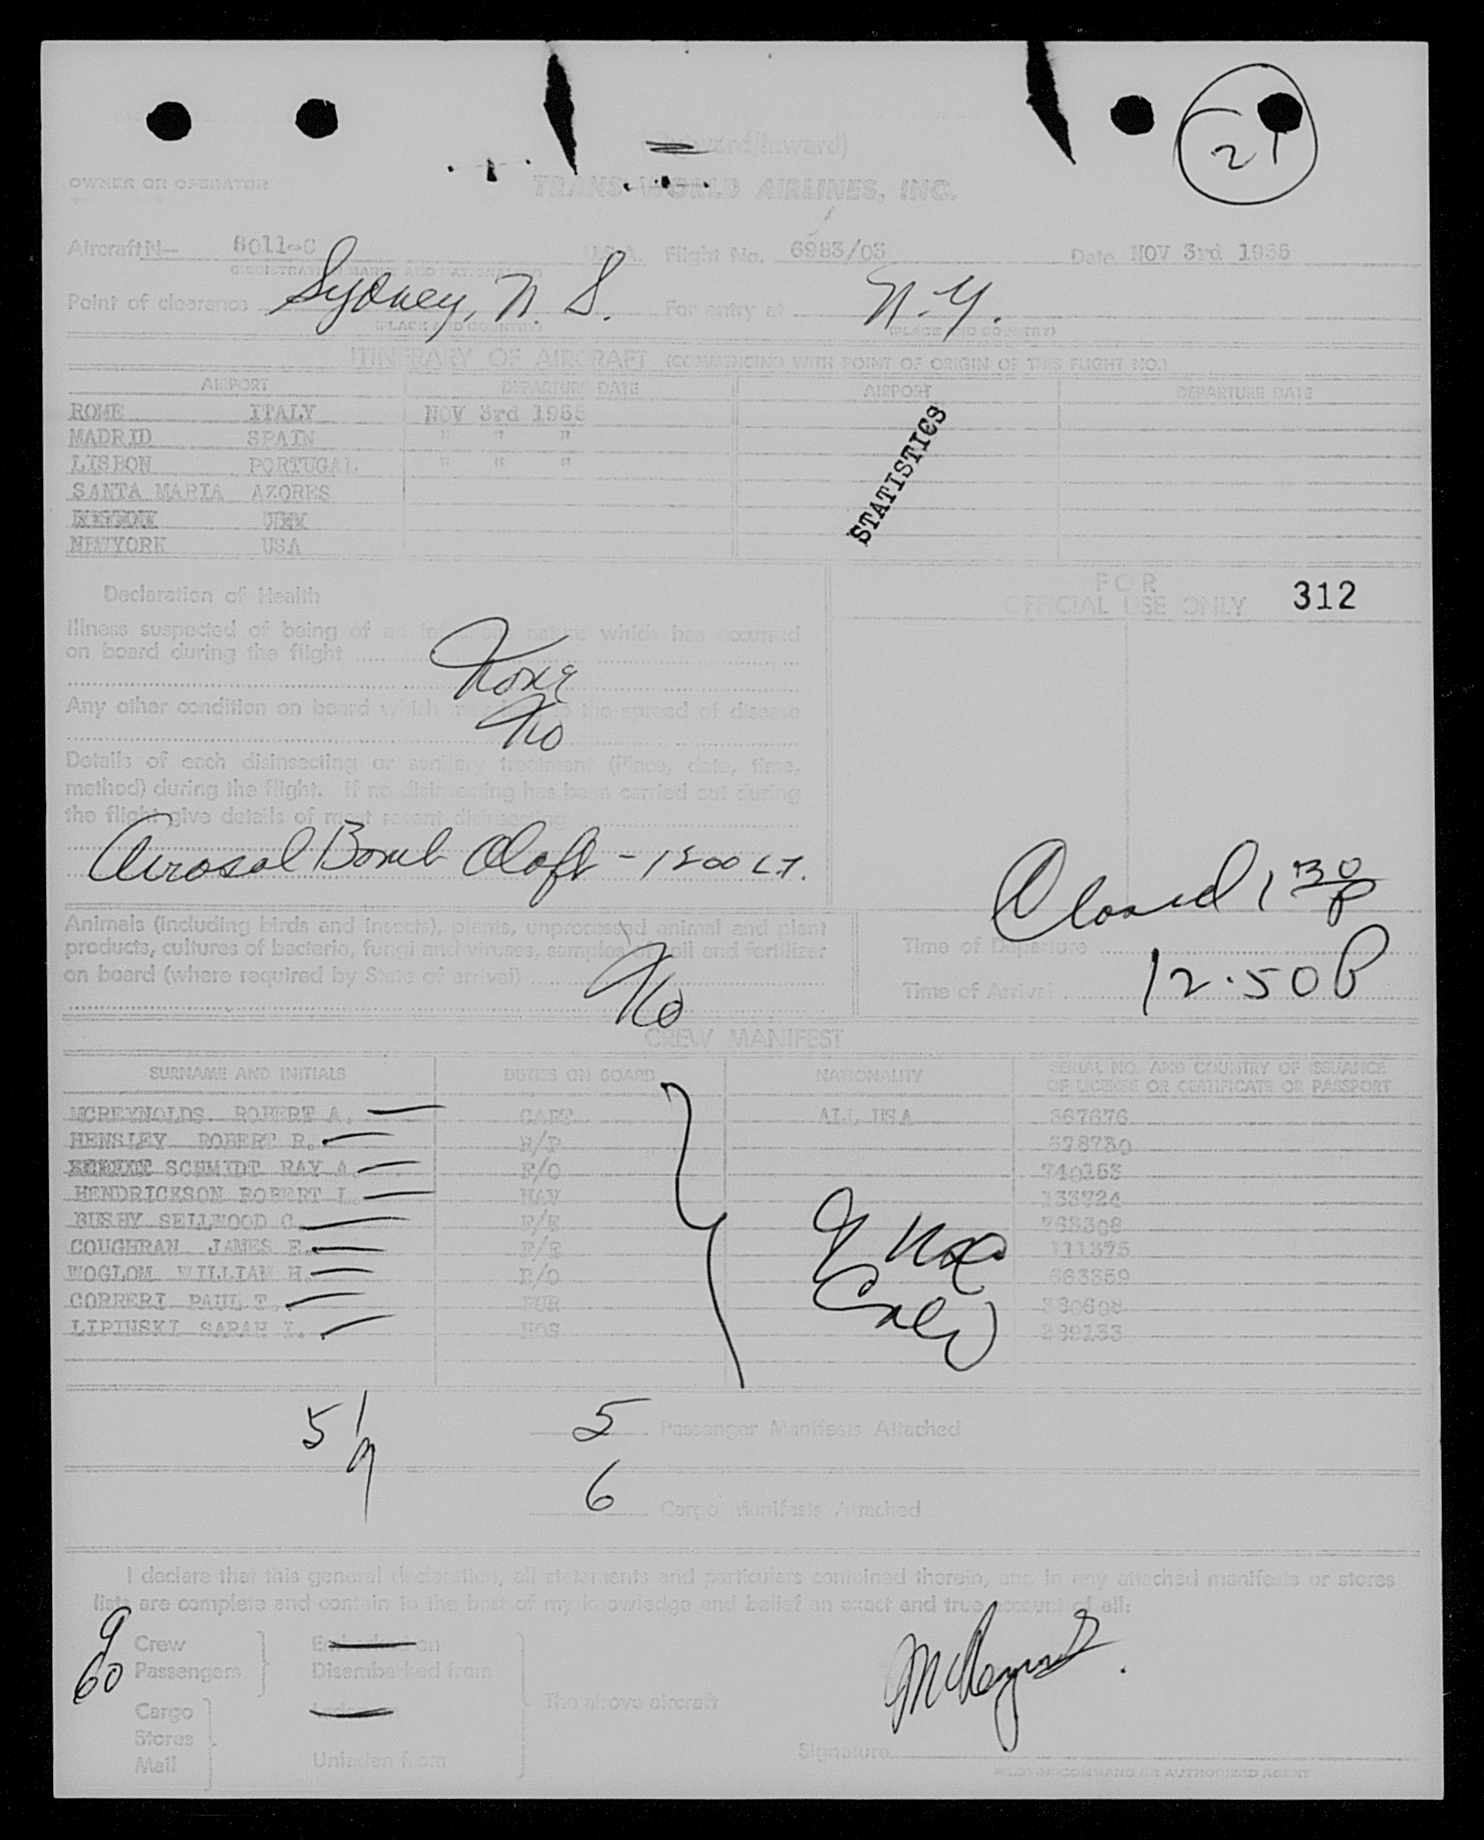 21
(Outward/Inward)
OWNER OR OPERATOR
TRANS WORLD AIRLINES, INC.
Aircraft N— 8011-C U.S.A. Flight No. 6983/03 Date NOV 3rd 1955
(REGISTRATION MARKS AND NATIONALITY)
Point of clearance Sydney, N. S. For entry at N.Y.
(PLACE AND COUNTRY) (PLACE AND COUNTRY)
ITINERARY OF AIRCRAFT (COMMENCING WITH POINT OF ORIGIN OF THIS FLIGHT NO.)
AIRPORT DEPARTURE DATE AIRPORT DEPARTURE DATE
ROME ITALY NOV 3rd 1955
MADRID SPAIN " " "
LISBON PORTUGAL " " "
SANTA MARIA AZORES
NEWYORK USA
STATISTICS
Declaration of Health
FOR
OFFICIAL USE ONLY 312
Illness suspected of being of an infectious nature which has occurred
on board during the flight
None
Any other condition on board which may lead to the spread of disease
No
Details of each disinsecting or sanitary treatment (Place, date, time,
method) during the flight. If no disinsecting has been carried out during
the flight give details of most recent disinsecting
Airosol Bomb Aloft - 1200 LT.
Closed 1 30 P
Animals (including birds and insects), plants, unprocessed animal and plant
products, cultures of bacteria, fungi and viruses, samples of soil and fertilizer
on board (where required by State of arrival)
No
Time of Departure
Time of Arrival 12.50 P
CREW MANIFEST
SURNAME AND INITIALS DUTIES ON BOARD NATIONALITY SERIAL NO. AND COUNTRY OF ISSUANCE
OF LICENSE OR CERTIFICATE OR PASSPORT
MCREYNOLDS ROBERT A. CAPT ALL USA 667676
HENSLEY ROBERT R. 578730
SCHMIDT RAY A. F/O 740153
HENDRICKSON ROBERT L. NAV 133724
BUSHY SELLWOOD C. F/E 763308
COUGHRAN JAMES E. F/E 111375
WOGLOM WILLIAM H. 663359
CORRERI PAUL T. PUR 380608
LIPINSKI SARAH I. HOS 299133
9
Crew
51
9
5 Passenger Manifests Attached
6 Cargo Manifests Attached
I declare that this general declaration, all statements and particulars contained therein, and in any attached manifests or stores
lists are complete and contain to the best of my knowledge and belief an exact and true account of all:
9 Crew Embarked on
60 Passengers Disembarked from
The above aircraft
Cargo
Stores
Mail Unladen from
McReynolds
Signature
PILOT IN COMMAND OR AUTHORIZED AGENT